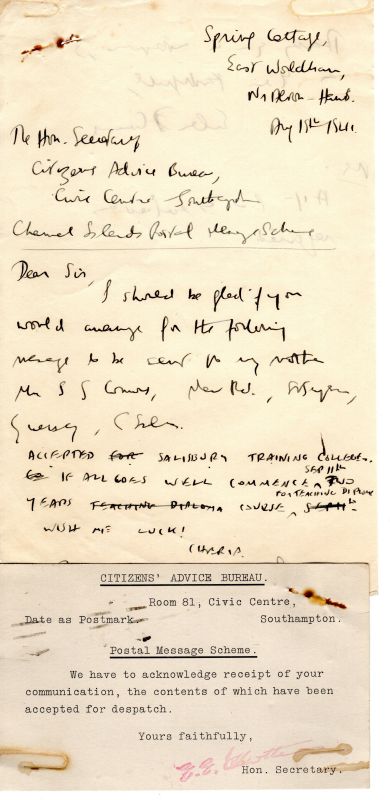 Spring Cottage,
East Worldham,
Nr Alton - Hants.
Aug 15th 1941.
The Hon. Secretary
Citizens Advice Bureau,
Civic Centre, Southampton
Channel Islands Postal Message Scheme
Dear Sir,
I should be glad if you
would arrange for the following
message to be sent to my mother
Mrs S J
Guernsey, C Islds.
ACCEPTED FOR SALISBURY TRAINING COLLEGE.
IF ALL GOES WELL COMMENCE SEP 11th TWO
YEARS TEACHING DIPLOMA COURSE FOR TEACHING DIPLOMA SEP 11th
WISH ME LUCK!
CITIZENS' ADVICE BUREAU.
Room 81, Civic Centre,
Date as Postmark. Southampton.
Postal Message Scheme.
We have to acknowledge receipt of your
communication, the contents of which have been
accepted for despatch.
Yours faithfully,
Hon. Secretary.